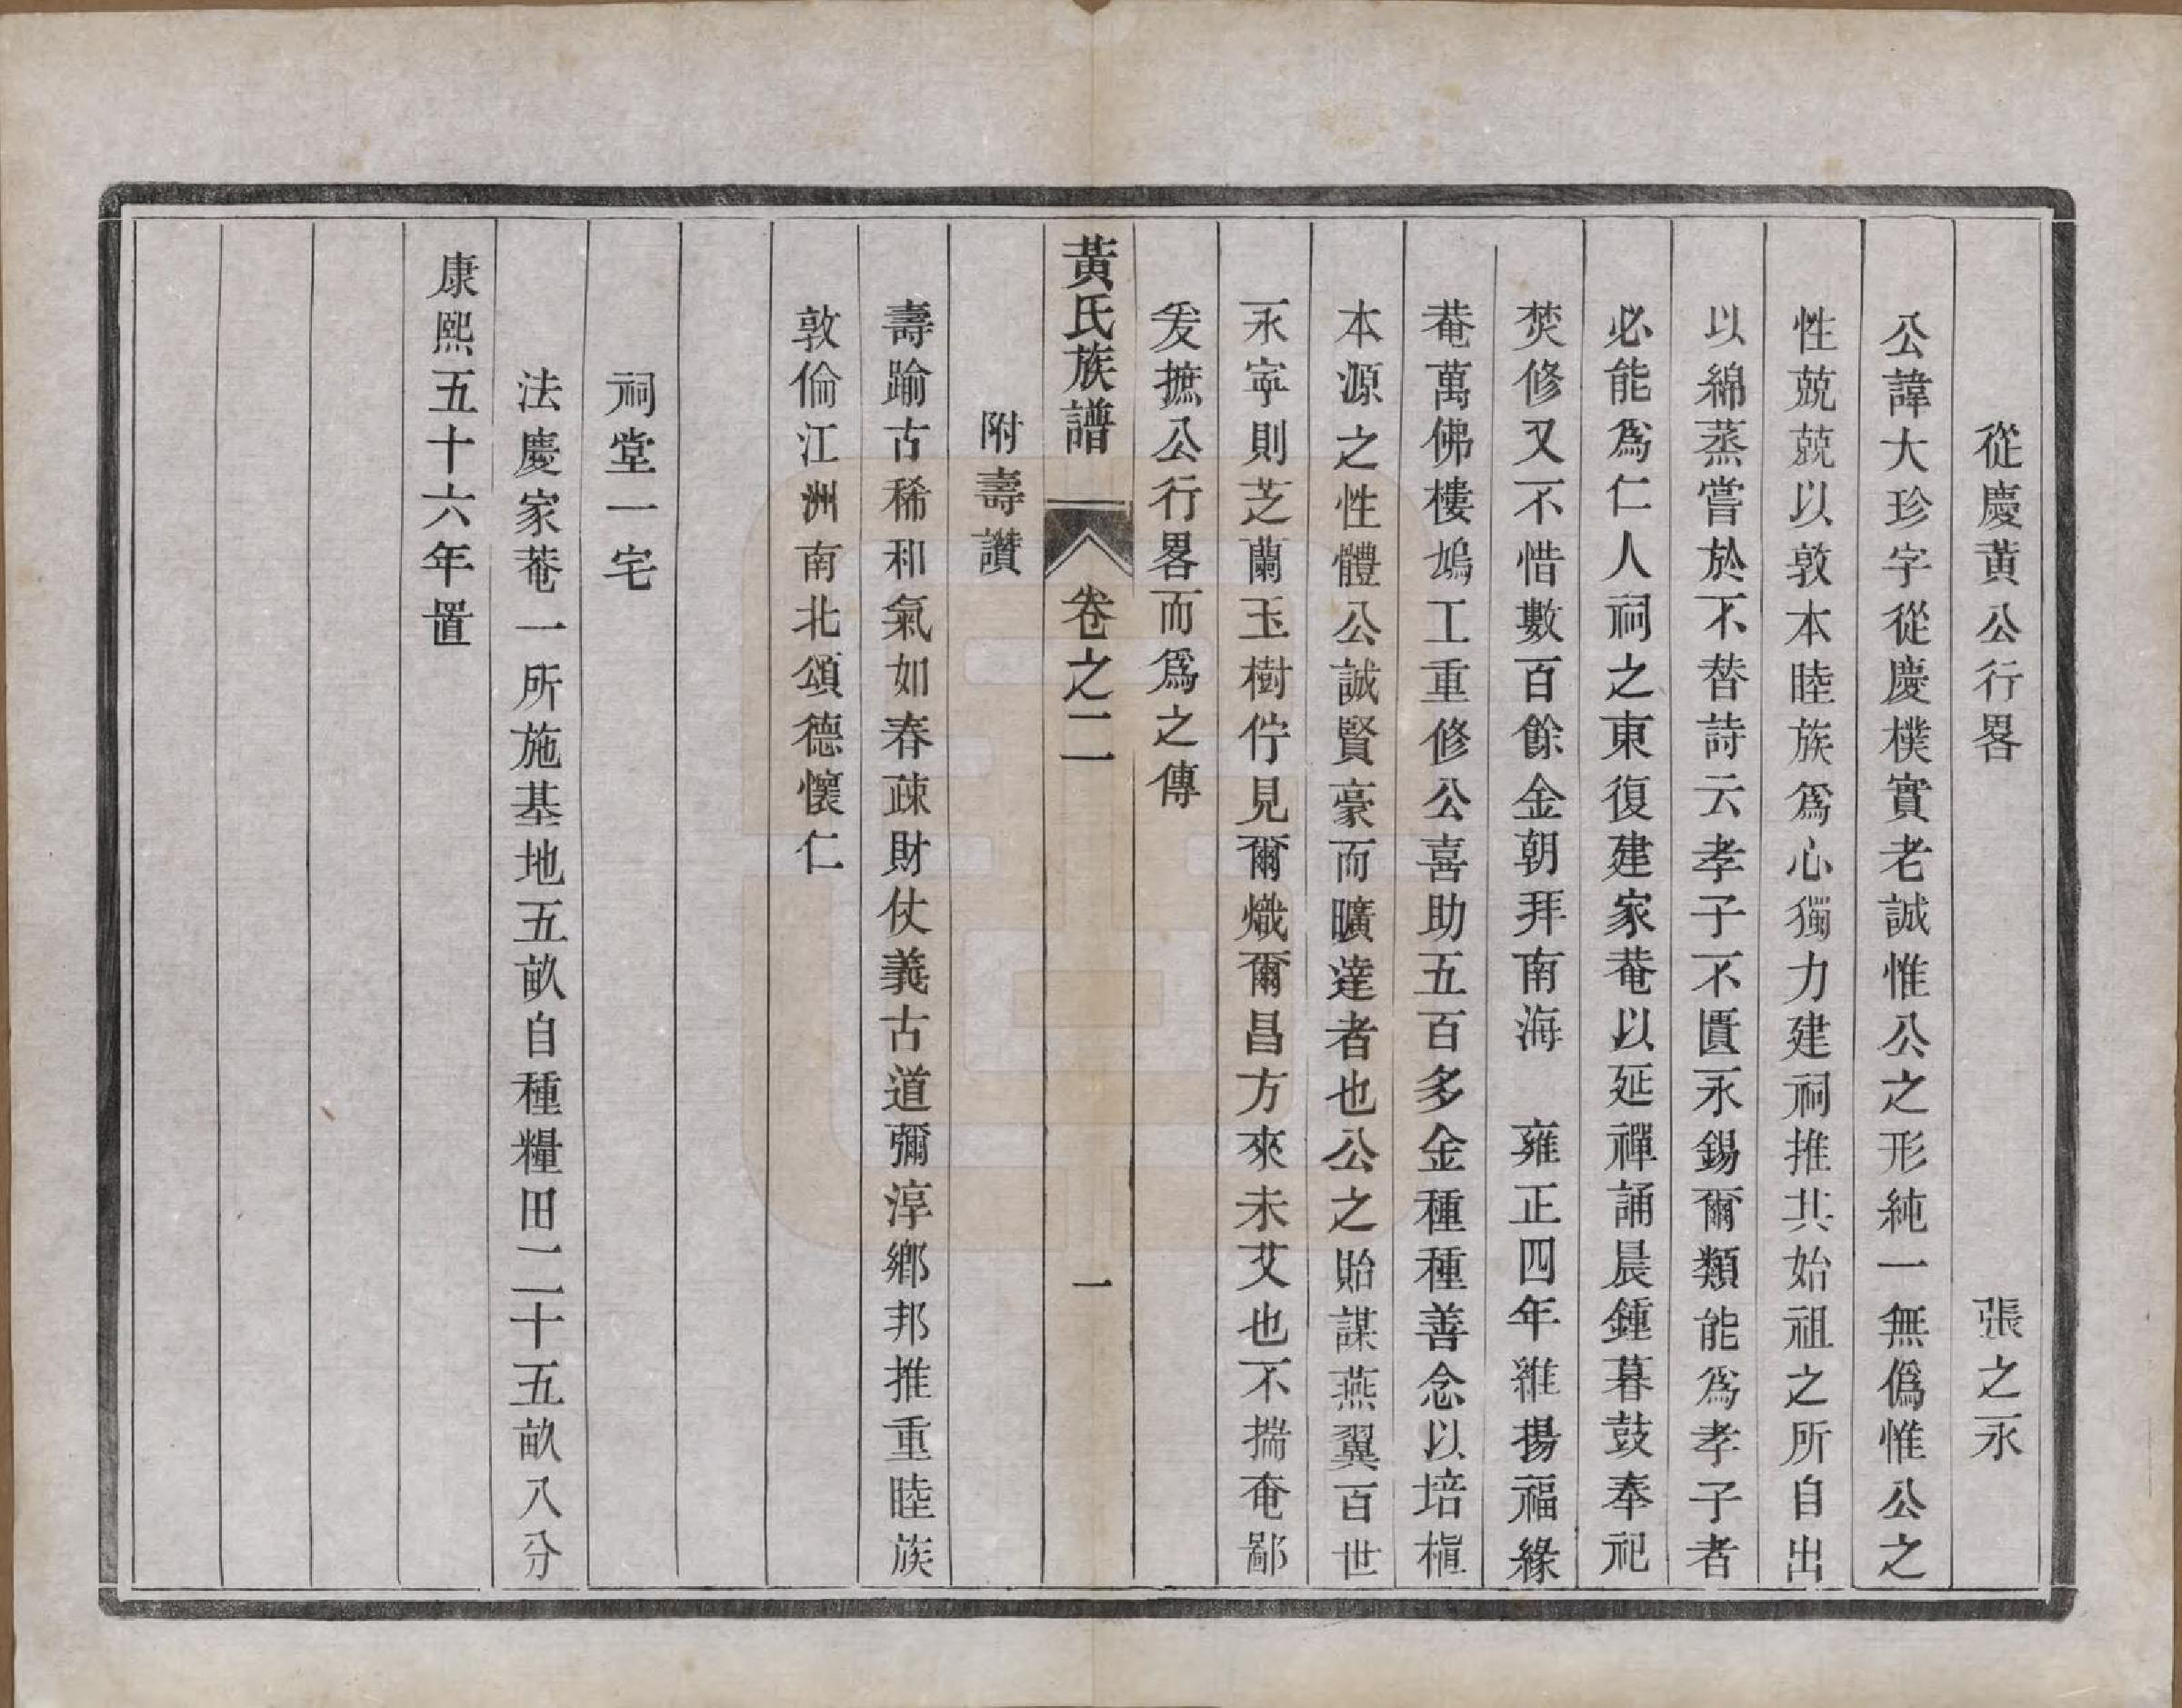 從慶黃公行畧　張之永
公諱大珍字從慶樸實老誠惟公之形純一無僞惟公之
性兢兢以敦本睦族爲心獨力建祠推其始祖之所自出
以綿蒸嘗於不替詩云孝子不匱永錫爾類能爲孝子者
必能爲仁人祠之東復建家菴以延禪誦晨鍾暮鼓奉祀
焚修又不惜數百餘金朝拜南海　雍正四年維揚福緣
菴萬佛樓鳩工重修公喜助五百多金種種善念以培植
本源之性體公誠賢豪而曠達者也公之貽謀燕翼百世
永寧則芝蘭玉樹佇見爾熾爾昌方來未艾也不揣奄鄙
爰摭公行畧而爲之傳
黃氏族譜　卷之二　一
附壽讚
壽踰古稀和氣如春疎財仗義古道彌淳鄉邦推重睦族
敦倫江洲南北頌德懷仁
祠堂一宅
法慶家菴一所施基地五畝自種糧田二十五畝八分
康熙五十六年置